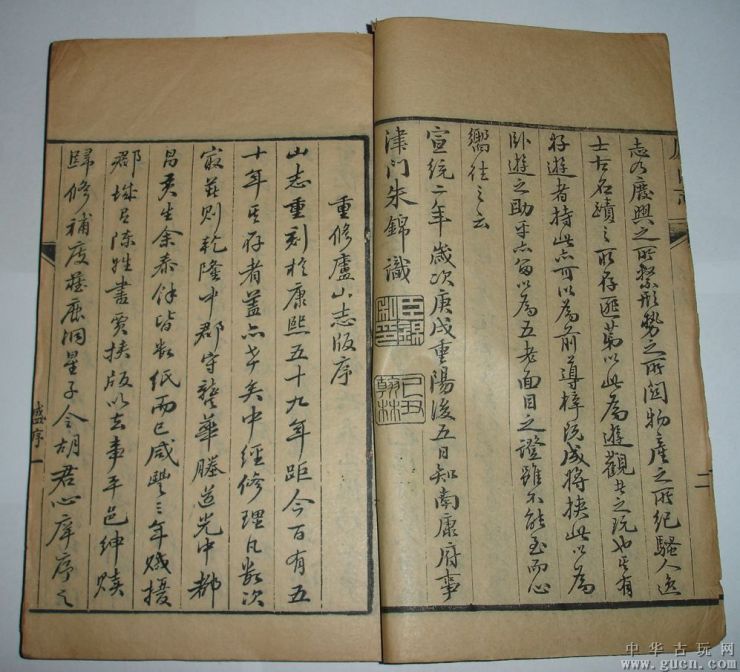 志乃廢興之所繫形勢之所閱物產之所紀騷人逸
士古名蹟之所存匪第以此為遊觀者之玩也其有
好遊者持此亦可以為前導梓既成將挾此以為
臥遊之助半亦留以為五老面目之證雖不能至而心
嚮往之云
宣統二年歲次庚戌重陽後五日知南康府事
津門朱錦識
臣錦
己丑翰林
二
重修廬山志版序
山志重刻於康熙五十九年距今百有五
十年其存者蓋亦尟矣中經修理凡數次
最著則乾隆中郡守龔華勝道光中都
昌黃生余泰伴皆數紙而已咸豐三年賊擾
郡城吕陳姓書賈挾版以去事平邑紳贖
歸修補庋藏鹿洞星子令胡君心庠序之
盛序
一
中华古玩网
www.gucn.com